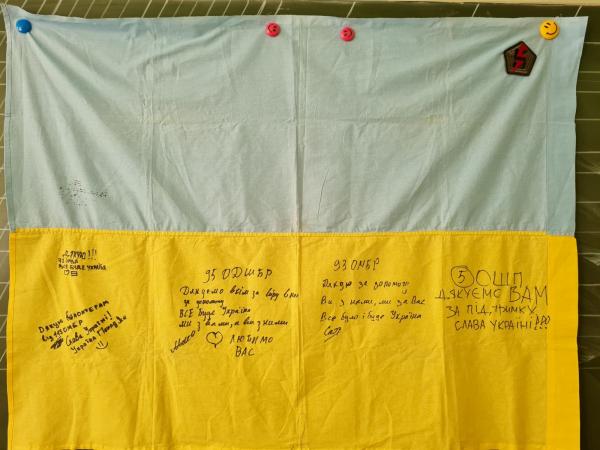 ДЯКУЮ!!!
ВСЕ БУДЕ УКРАЇНА
Дякую волонтерам
Слава Україні!
95 ОДШБР
Дякуємо всім за
за допомогу
ВСЕ Буде Україна
ми з вами, а ви з нами
ЛЮБИМО
ВАС
93 ОМБР
Дякую за допомогу
Ви з нами, ми за Вас
Все було і буде Україна
5 ОШП
ДЯКУЄМО ВАМ
ЗА ПІДТРИМКУ
СЛАВА УКРАЇНІ!!!
5